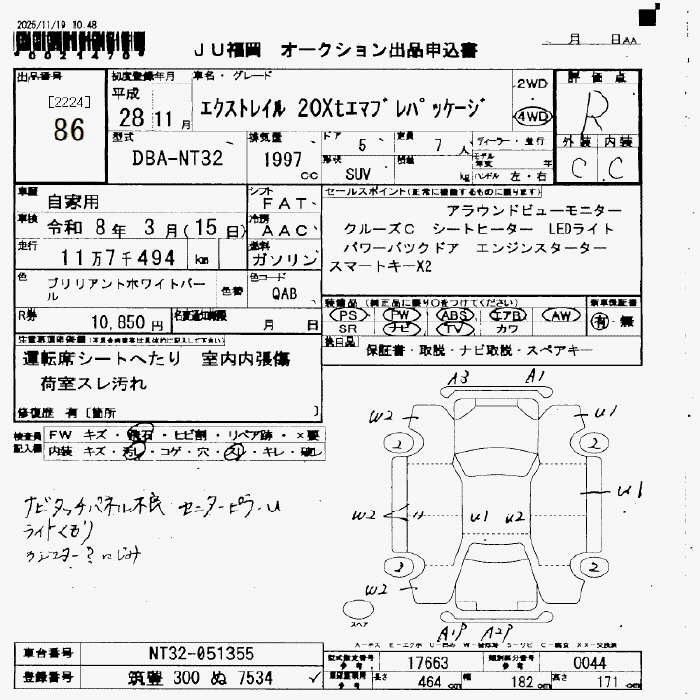 2025/11/19 10.48
0621470
JU福岡 オークション出品申込書
月 日AA
出品番号
[2224]
86
初度登録年月
平成
28 11 月
車名・グレード
エクストレイル 20Xtエマブレパッケージ
2WD
4WD
評価点
R
外装 内装
C C
型式
DBA-NT32
排気量
1997 cc
ドア 5
定員 7 人
形状 SUV
積載 kg
ディーラー・並行
モデル年度 年
ハンドル 左・右
車歴
自家用
シフト
FAT
車検
令和 8 年 3 月 (15 日)
冷房
AAC
走行
11万7千494 km
燃料
ガソリン
色
ブリリアントホワイトパール
色替
色コード
QAB
R券
10,850 円
名変通知期限
月 日
セールスポイント(正常に機能するものに限ります)
アラウンドビューモニター
クルーズC シートヒーター LEDライト
パワーバックドア エンジンスターター
スマートキーX2
装備品 (純正品に限り○をつけてください)
新車保証書
PS PW ABS エアB AW
SR ナビ TV カワ
有・無
後日品
保証書・取説・ナビ取説・スペアキー
注意事項
運転席シートへたり 室内内張傷
荷室スレ汚れ
修復歴 有 [箇所 ]
検査員記入欄
FW キズ・飛石・ヒビ割・リペア跡・×要
内装 キズ・汚れ・コゲ・穴・スレ・キレ・破レ
ナビタッチパネル不良 センターピラーU
ライトくもり
A3 A1
W2 U1
2 2
W2 U1 U2 U1
3 2
W2
スペア
A1P A2P
車台番号 NT32-051355
登録番号 筑豊 300 ぬ 7534
型式指定番号 17663
類別区分番号 0044
長さ 464 cm 幅 182 cm 高さ 171 cm